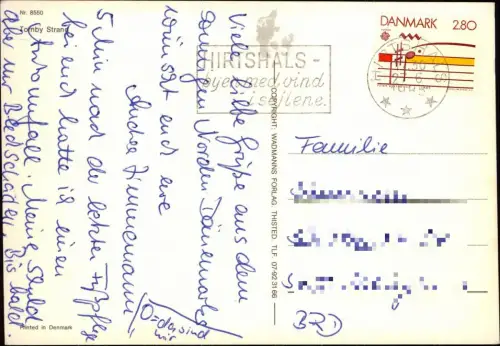 Nr. 8560
Tornby Strand
Viele liebe Grüße aus dem
sonnigen Norden Dänemarks
wünscht euch eure
Andrea Zimmermann!
5 Min nach der letzten Fußpflege
bei euch hatte ich einen
Autounfall. Meine Schuld
aber nur Blechschaden. Bis bald.
O = da sind
wir
Printed in Denmark
COPYRIGHT: WADMANNS FORLAG. THISTED. TLF. 07-92 31 66
HIRTSHALS -
byen med vind
i sejlene.
DANMARK 2.80
Familie
BRD